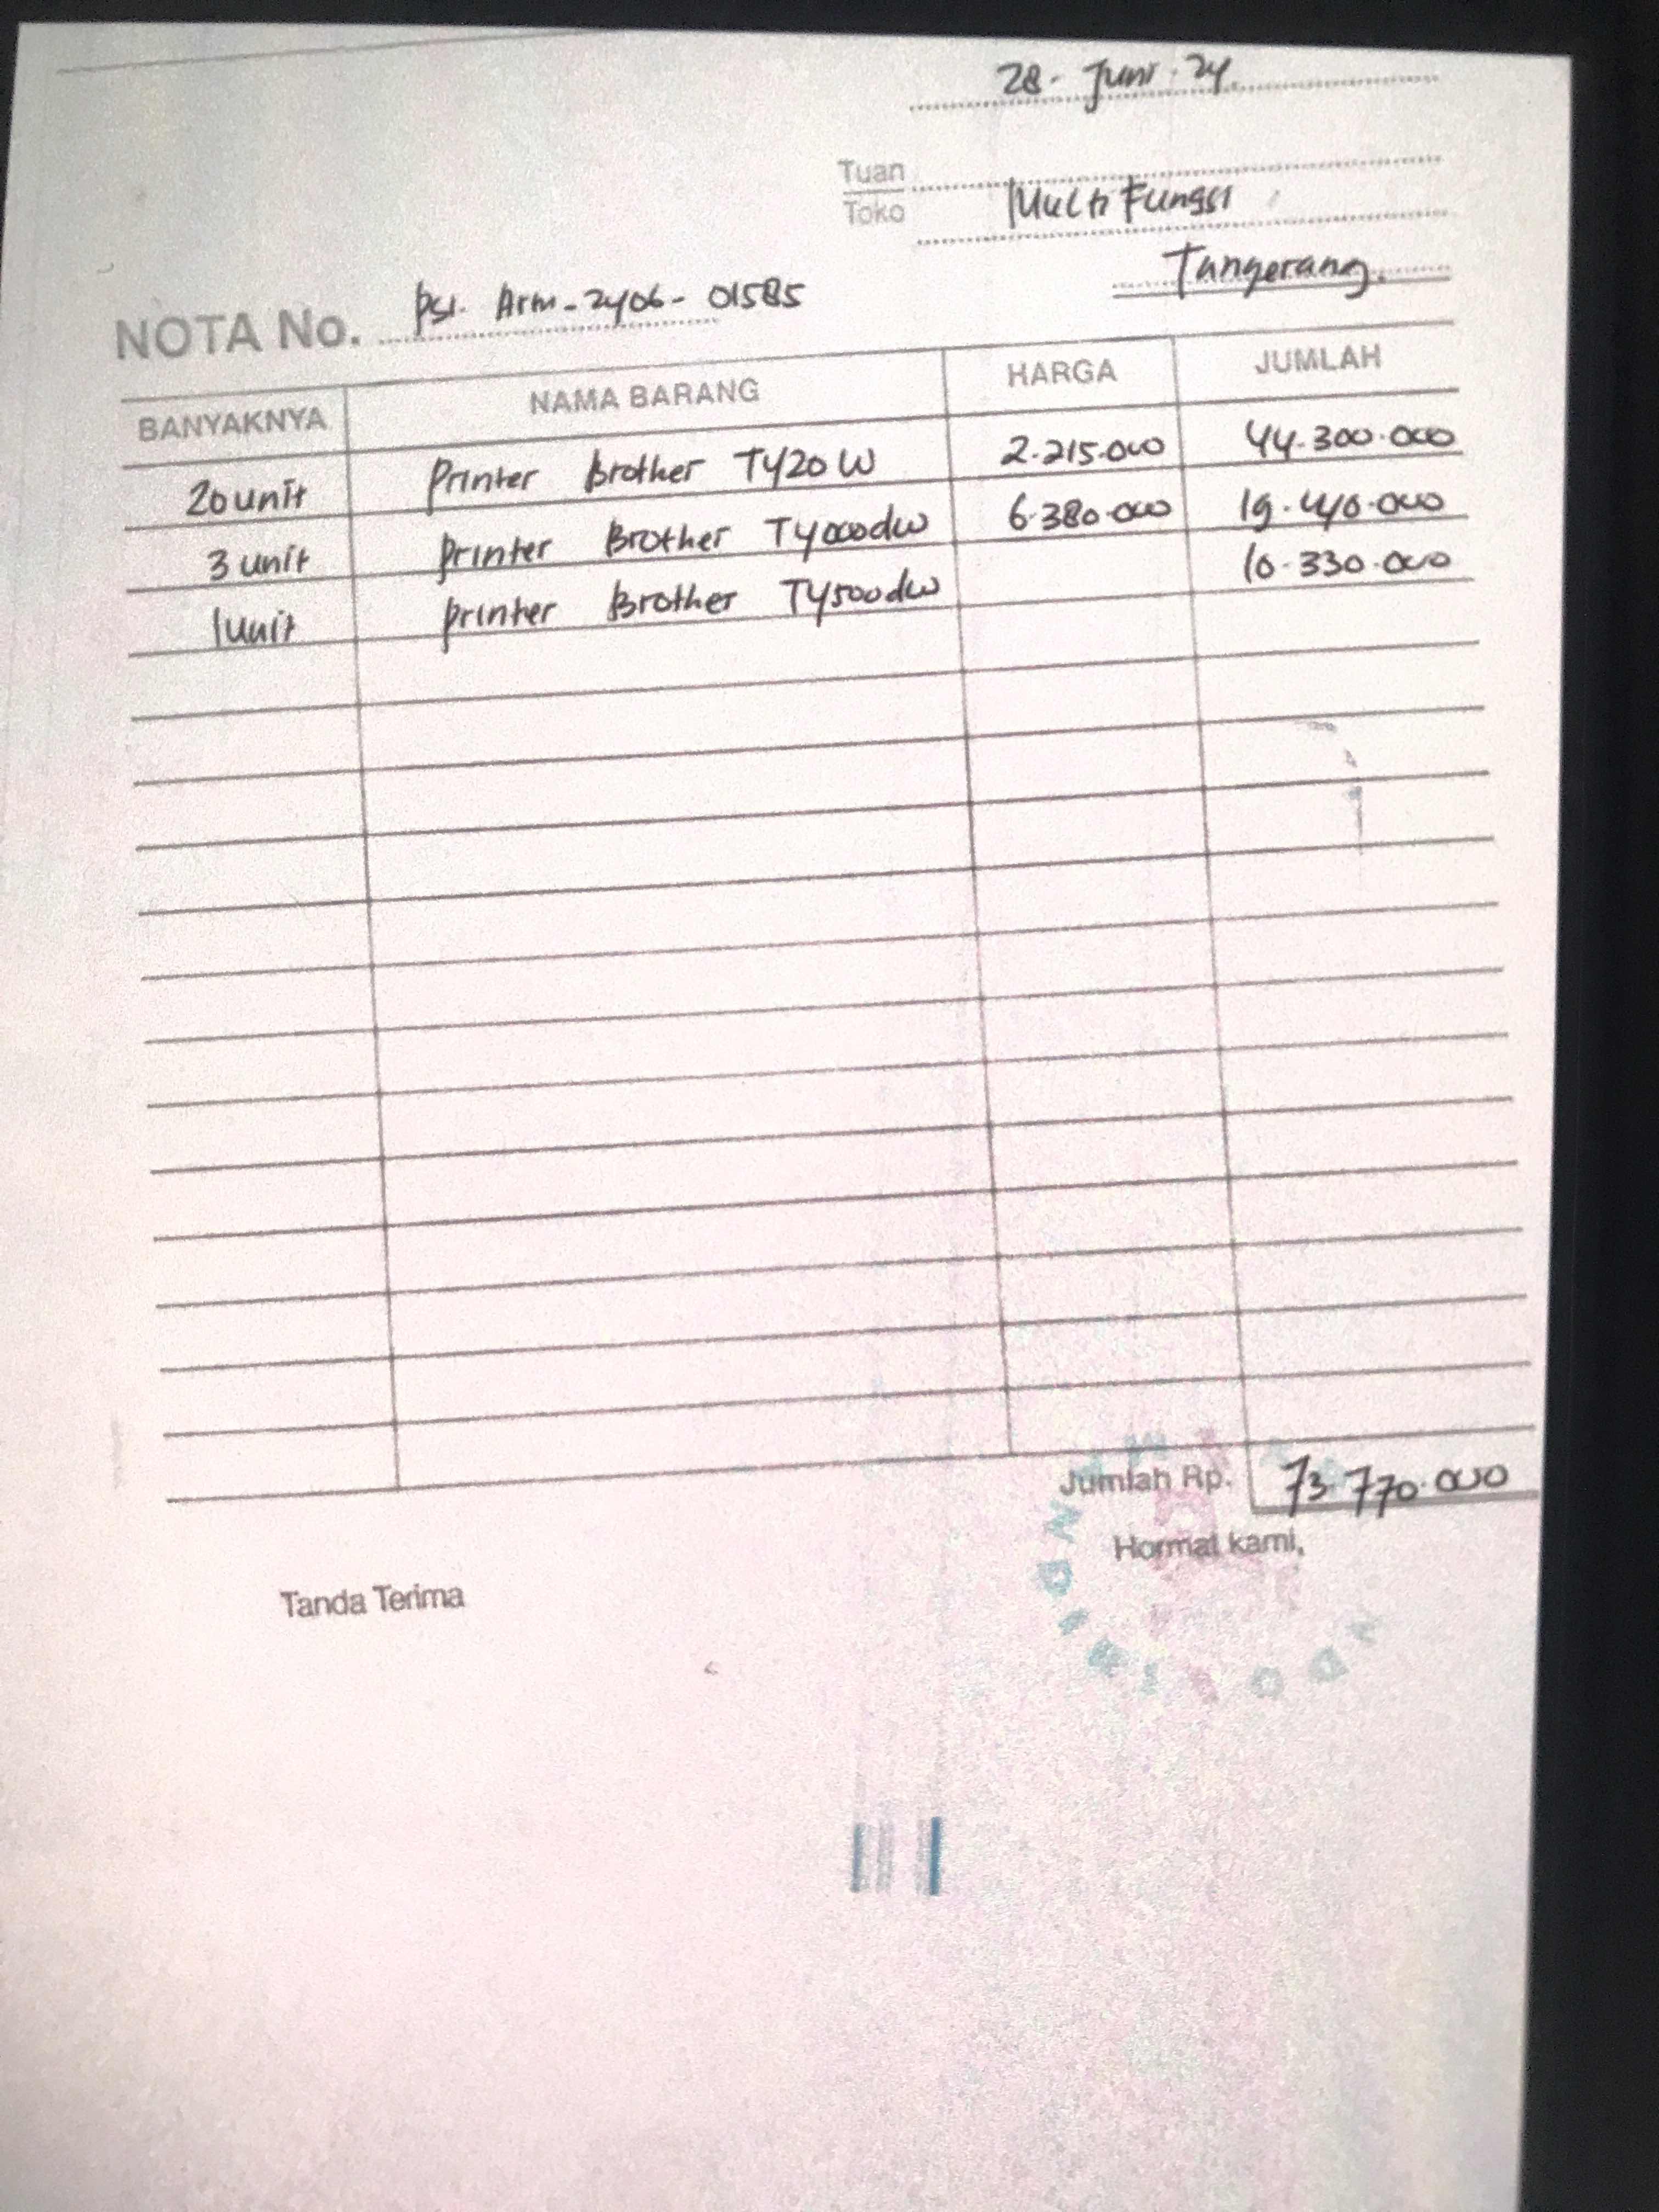 28 - Juni - 24
Tuan
Toko Multi Fungsi
Tangerang.
NOTA No. psi. Arm - 2406 - 01585
BANYAKNYA NAMA BARANG HARGA JUMLAH
20 unit Printer Brother T420 W 2.215.000 44.300.000
3 unit Printer Brother T4000dw 6.380.000 19.140.000
1 unit Printer Brother T4500dw 10.330.000
Jumlah Rp. 73.770.000
Hormat kami,
Tanda Terima